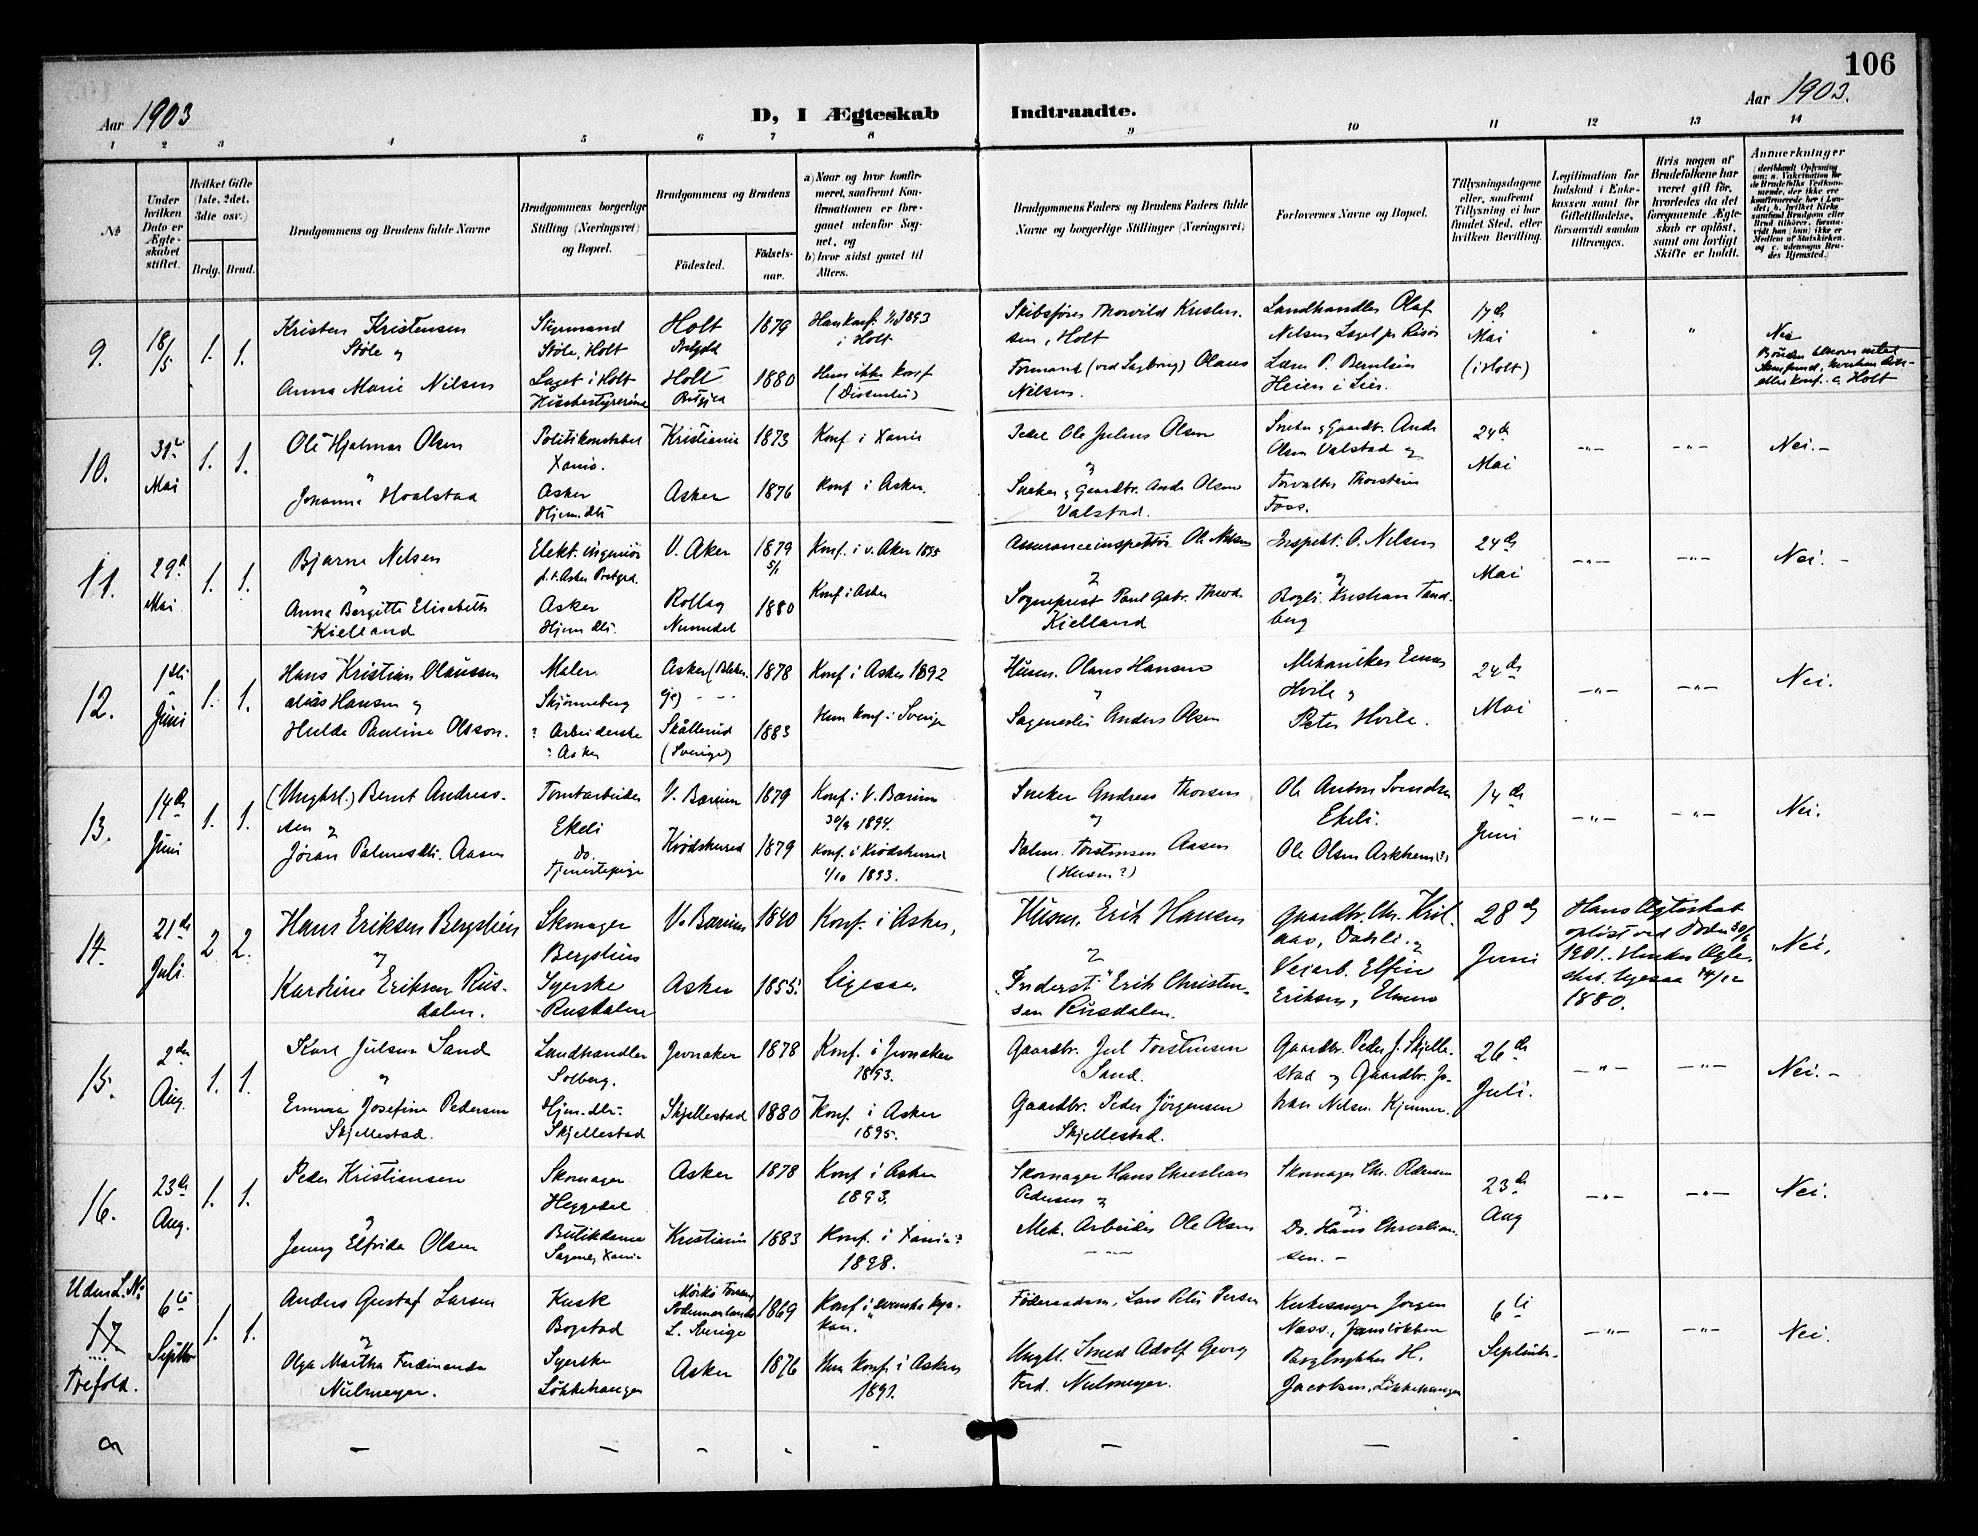 106
Aar 1903
D, I Ægteskab Indtraadte.
Aar 1903.
1 2 3 4 5 6 7 8 9 10 11 12 13 14
No
Under hvilken Dato er Ægteskabet stiftet.
Hvilket Gifte (1ste, 2det, 3die osv.)
Brdg. Brud.
Brudgommens og Brudens fulde Navne
Brudgommens borgerlige Stilling (Næringsvei) og Bopæl.
Brudgommens og Brudens
Födested.
Födselsaar.
a) Naar og hvor konfirmeret, saafremt Konfirmationen er foregaaet udenfor Sognet, og
b) hvor sidst gaaet til Alters.
Brudgommens Faders og Brudens Faders fulde Navne og borgerlige Stillinger (Næringsvei)
Forlovernes Navne og Bopæl.
Tillysningsdagene eller, saafremt Tillysning ei har fundet Sted, efter hvilken Bevilling.
Legitimation for Indskud i Enkekassen samt for Giftetilladelse, forsaavidt saadan tiltrænges.
Hvis nogen af Brudefolkene har været gift för, hvorledes da det foregaaende Ægteskab er oplöst, samt om lovligt Skifte er holdt.
Anmærkninger
9. 18/5 1. 1.
Kristen Kristensen
Støle og
Anna Marie Nilsen
Styrmand
Støle, Holt
Laget i Holt
Husbestyrerinde
Holt
Holt
1879
1880
Han konf. 1893
i Holt
Hun ikke konf
(Dissenter)
Skibsfører Thorvild Kristensen, Holt
Formand (ved Sagbrug) Olaus
Nilsen.
Landhandler Olaf
Nilsen Laget pr Risør
P. Berntsen
Heien i Lier.
17de
Mai
(i Holt)
Nei
c, Holt
10. 31te Mai 1. 1.
Ole Hjalmar Olsen
"
Johanne Hvalstad
Politikonstabel
Xania.
Asker
Hjem.dtr
Kristiania
Asker
1873
1876
Konf i Xania
Konf i Asker.
Ole Julius Olsen
og
Sneker og Gaardbr. Andr Olsen
Valstad.
Sneker og Gaardbr. Andr
Olsen Valstad og
Forvalter Thorstein
Foss.
24de
Mai
—"—
—"—
Nei.—
11. 29de Mai. 1. 1.
Bjarne Nilsen
"
Anna Bergitte Elisabeth
Kielland
Elekt. ingeniør
f. t. Asker Prstgrd.
Asker
Hjem dtr.
V. Aker
Rollag
Numedal
1879
5/1
1880
Konf. i v. Aker 1895
Konf i Asker
Assuranceinspektør Ole Nilsen
og
Sogneprest Paul Gabr. Theod.
Kielland
Inspekt. O. Nilsen
og
Bogh. Kristian Tandberg
24de
Mai
—"—
—"—
Nei.—
12. 1ste Juni 1. 1.
Hans Kristian Olaussen
alias Hansen og
Hulda Pauline Olsson.
Maler
Skjønneberg
? Arbeiderske
? Asker
Asker (Blakereje)
Skållerud
(Sverige)
1878
1883
Konf i Asker 1892
Hun konf. i Sverige
Husm. Olaus Hansen
"
Sagmester Anders Olsen
Mekaniker Einar
Hvile og
Peter Hvile.
24de
Mai
—"—
—"—
Nei.
13. 14de Juni 1. 1.
(Ungkrl.) Bernt Andreassen og
Jøran Palmesdtr. Aasen
Tomtarbeider
Ekeli
do.
Tjenestepige
V. Bærum
Krødsherred
1879
1879
Konf. i V. Bærum
30/9 1894.
Konf. i Krødsherred
1/10 1893.
Sneker Andreas Thorsen
og
Palm. Torstensen Aasen
(Husm?)
Ole Anton Svendsen
Ekeli.
Ole Olsen Arkhem(?)
14de
Juni
—"—
—"—
Nei.
14. 21de Juli 2 2.
Hans Eriksen Bergstien
og
Karoline Eriksen Rusdalen.
Skomager
Bergstien
Syerske
Rusdalen
V. Bærum
Asker
1840
1855.
Konf. i Asker,
ligesaa.
Husm. Erik Hansen
og
"Inderst" Erik Christensen Rusdalen.
Gaardbr. Chr. Kril-
aas, og
Veiarb. Elfin
Eriksen,
28de
Juni
Hans Ægteskab
opløst ved Døden 30/6
1901. Hendes Ægteskab ligesaa 14/12
1880.
Nei.
15. 2den Aug. 1. 1.
Karl Julsen Sand
og
Emma Josefine Pedersen
Skjellestad.
Landhandler
Solberg.
Hjem.dtr.
Skjellestad
Jevnaker
Skjellestad
1878
1880
Konf. i Jevnaker
1893.
Konf. i Asker
1895.
Gaardbr. Jul Torstensen
Sand.
Gaardbr. Peder Jørgensen
Skjellestad.
Gaardbr. Peder J. Skjellestad og Gaardbr. Johan Nilsen Kjenner.
26de
Juli.
—"—
—"—
Nei.—
16. 23de Aug. 1. 1.
Peder Kristiansen
og
Jenny Elfrida Olsen
Skomager
Heggedal
Butikdame
Sagene, Xania
Asker
Kristiania
1878
1883
Konf i Asker
1893.
Konf. i Xania?
1898.
Skomager Hans Christian
Pedersen og
Mek. Arbeider Ole Olsen
Skomager Chr. Pedersen
og
Do. Hans Christiansen.—
23de
Aug
—"—
—"—
Nei.
Uden L. No
17
Trefold.
6te Septbr 1. 1.
Anders Gustaf Larsen
og
Olga Martha Ferdinanda
Nulmeyer.
Kusk
Bogstad
Syerske
Løkkehaugen
Sødermanlands
L. Sverige
Asker
1869
1876
Konf i svenske kyrkan.
Hun konf. i Asker
1891.
Føderaadsm. Lars Peter Persen
Ungkl. Smed Adolf Georg
Ferd. Nulmeyer.
Kirkesanger Jørgen
Næss, Jansløkken
Bogtrykker H.
Jacobsen, Løkkehaugen
6te
Septembr.
—"—
—"—
Nei.